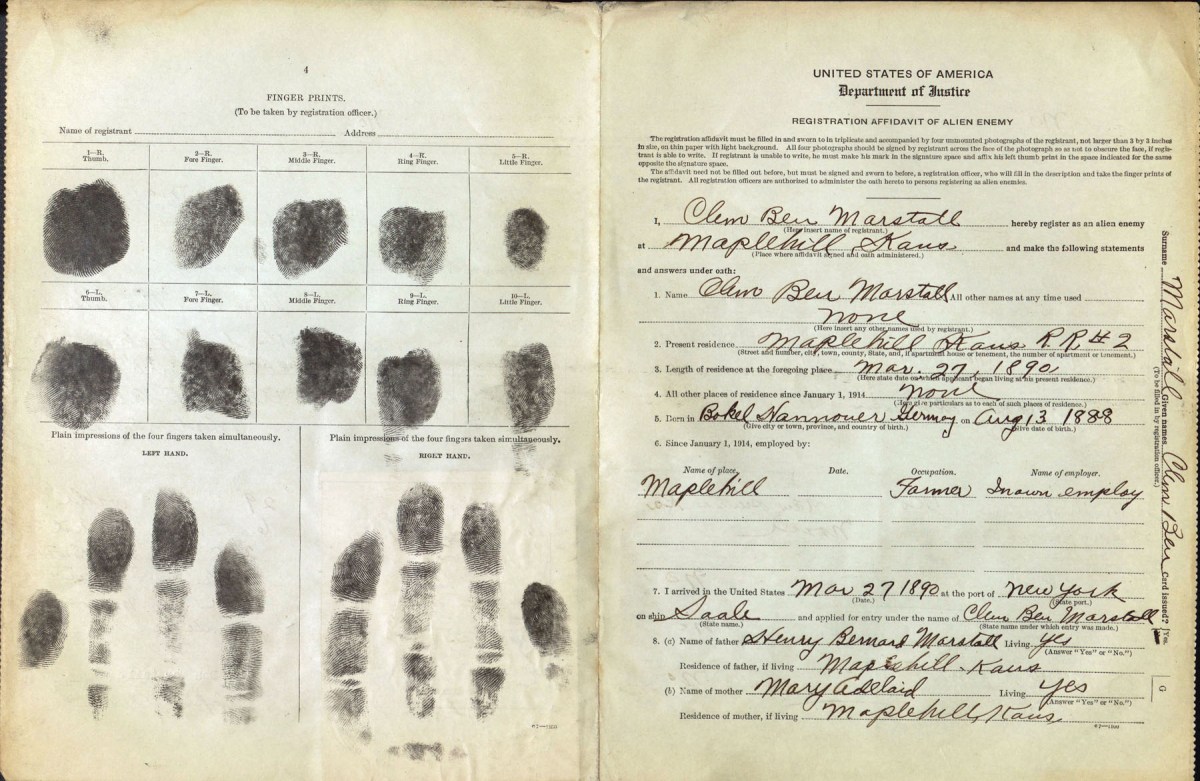 4
FINGER PRINTS.
(To be taken by registration officer.)
Name of registrant Address
1—R. Thumb. 2—R. Fore Finger. 3—R. Middle Finger. 4—R. Ring Finger. 5—R. Little Finger.
6—L. Thumb. 7—L. Fore Finger. 8—L. Middle Finger. 9—L. Ring Finger. 10—L. Little Finger.
Plain impressions of the four fingers taken simultaneously. Plain impressions of the four fingers taken simultaneously.
LEFT HAND. RIGHT HAND.
UNITED STATES OF AMERICA
Department of Justice
REGISTRATION AFFIDAVIT OF ALIEN ENEMY
The registration affidavit must be filled in and sworn to in triplicate and accompanied by four unmounted photographs of the registrant, not larger than 3 by 3 inches
in size, on thin paper with light background. All four photographs should be signed by registrant across the face of the photograph so as not to obscure the face, if regis-
trant is able to write. If registrant is unable to write, he must make his mark in the signature space and affix his left thumb print in the space indicated for the same
opposite the signature space.
The affidavit need not be filled out before, but must be signed and sworn to before, a registration officer, who will fill in the description and take the finger prints of
the registrant. All registration officers are authorized to administer the oath hereto to persons registering as alien enemies.
I, Clem Ben Marstall hereby register as an alien enemy
(Here insert name of registrant.)
at Maplehill Kans and make the following statements
(Place where affidavit signed and oath administered.)
and answers under oath:
1. Name Clem Ben Marstall All other names at any time used
none
(Here insert any other names used by registrant.)
2. Present residence Maplehill Kans R.R # 2
(Street and number, city, town, county, State, and, if apartment house or tenement, the number of apartment or tenement.)
3. Length of residence at the foregoing place Mar. 27, 1890
(Here state date on which applicant began living at his present residence.)
4. All other places of residence since January 1, 1914 none
(Here give particulars as to each of such places of residence.)
5. Born in Bokel Hannover Germay on Aug 13 1888
(Give city or town, province, and country of birth.) (Give date of birth.)
6. Since January 1, 1914, employed by:
Name of place. Date. Occupation. Name of employer.
Maplehill Farmer In own employ
7. I arrived in the United States Mar 27 1890 at the port of New York
(Date.) (State port.)
on ship Saale and applied for entry under the name of Clem Ben Marstall
(State name.) (State name under which entry was made.)
8. (a) Name of father Henry Bernard Marstall Living Yes
(Answer "Yes" or "No.")
Residence of father, if living Maplehill - Kans
(b) Name of mother Mary Adelaid Living Yes
(Answer "Yes" or "No.")
Residence of mother, if living Maplehill, Kans
Surname Marstall Given names Clem Ben Card issued? Yes.
(To be filled in by registration officer.)
G